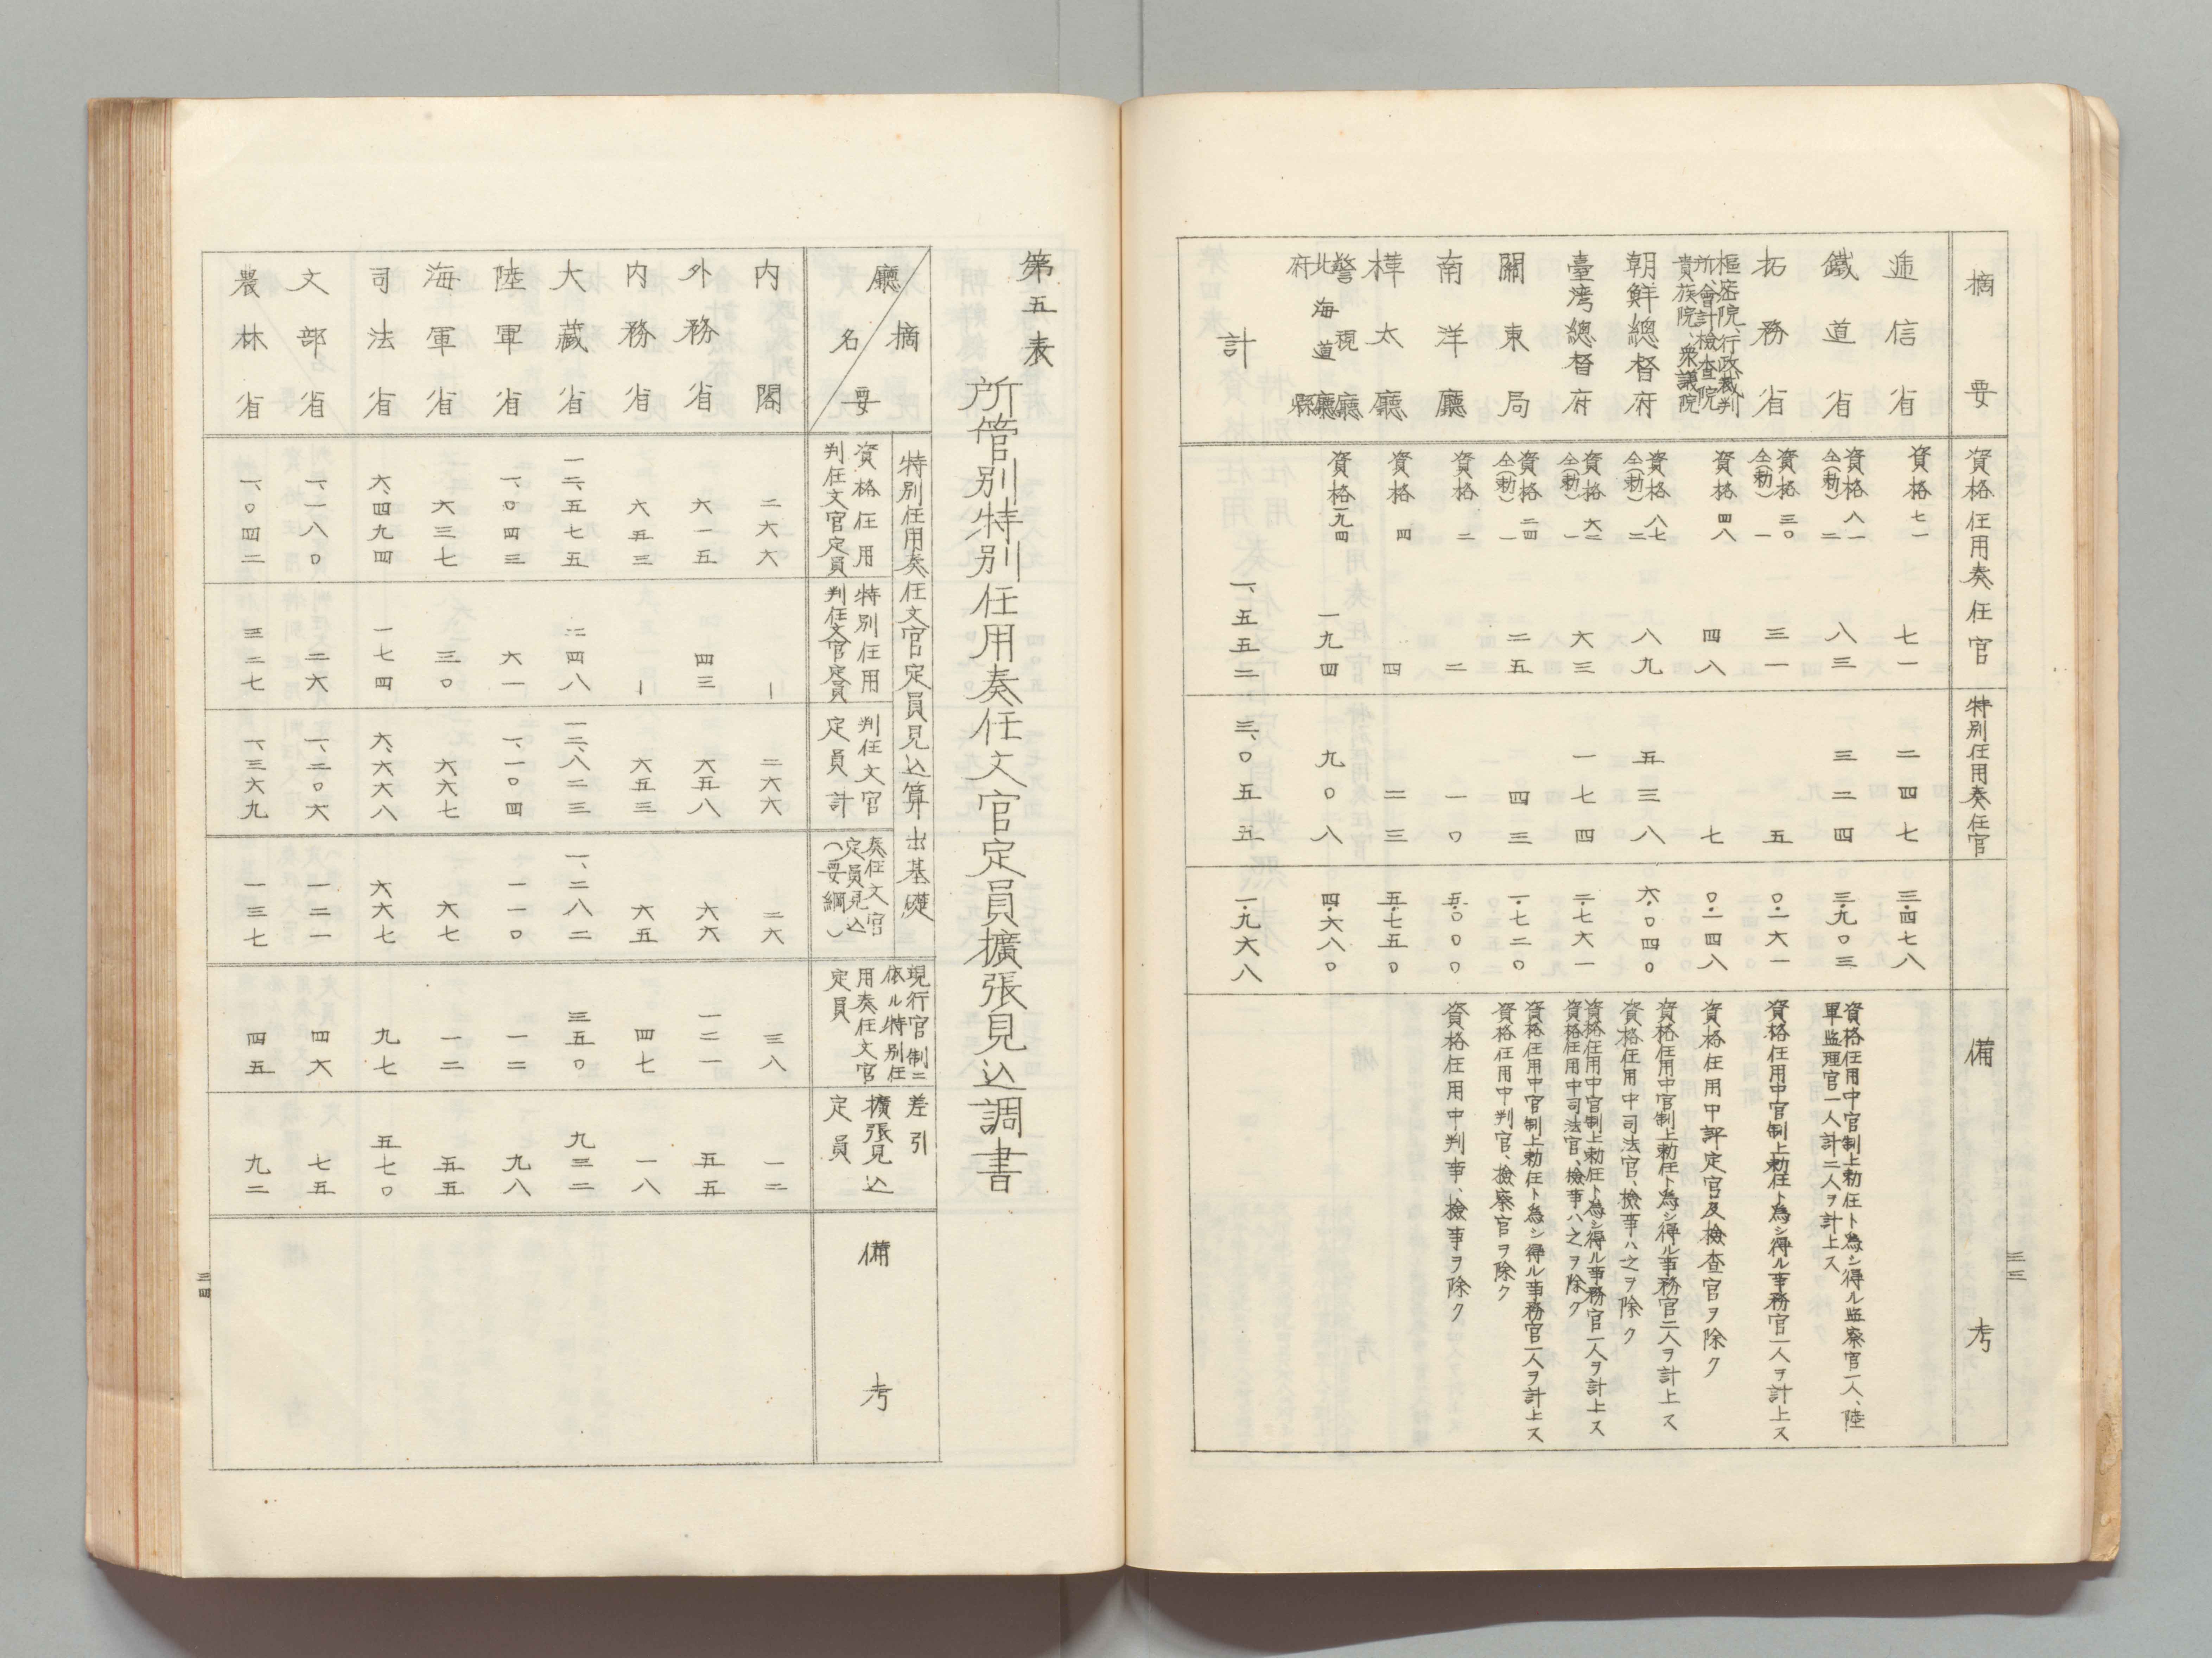 摘要
資格任用奏任官
特別任用奏任官
備考
遞信省 資格 七一 七一 二四七 三・四七八
鐵道省 資格 八一 仝(勅) 二 八三 三二四 三・九〇三 資格任用中官制上勅任ト爲シ得ル監察官一人、陸
軍監理官一人計二人ヲ計上ス
拓務省 資格 三〇 仝(勅) 一 三一 五 〇・一六一 資格任用中官制上勅任ト爲シ得ル事務官一人ヲ計上ス
樞密院、行政裁判
所、會計檢査院
貴族院、衆議院 資格 四八 四八 七 〇・一四八 資格任用中評定官及檢査官ヲ除ク
朝鮮總督府 資格 八七 仝(勅) 二 八九 五三八 六・〇四〇 資格任用中官制上勅任ト爲シ得ル事務官二人ヲ計上ス
資格任用中司法官、檢事ハ之ヲ除ク
臺灣總督府 資格 六二 仝(勅) 一 六三 一七四 二・七六一 資格任用中官制上勅任ト爲シ得ル事務官一人ヲ計上ス
資格任用中司法官、檢事ハ之ヲ除ク
關東局 資格 二四 仝(勅) 一 二五 四三 一・七二〇 資格任用中官制上勅任ト爲シ得ル事務官一人ヲ計上ス
資格任用中判官、檢察官ヲ除ク
南洋廳 資格 二 二 一〇 五・〇〇〇 資格任用中判事、檢事ヲ除ク
樺太廳 資格 四 四 二三 五・七五〇
警視廳
北海道廳
府縣 資格 一九四 一九四 九〇八 四・六八〇
計 一、五五二 三、〇五五 一・九六八
三三
第五表
所管別特別任用奏任文官定員擴張見込調書
摘要
廳名
特別任用奏任文官定員見込算出基礎
資格任用
判任文官定員
特別任用
判任文官定員
判任文官
定員計
奏任文官
定員見込
(要綱)
現行官制ニ
依ル特別任
用奏任文官
定員
差引
擴張見込
定員
備考
內閣 二六六 ー 二六六 二六 三八 一二
外務省 六一五 四三 六五八 六六 一二一 五五
內務省 六五三 ー 六五三 六五 四七 一八
大藏省 一二、五七五 二四八 一二、八二三 一、二八二 三五〇 九三二
陸軍省 一、〇四三 六一 一、一〇四 一一〇 一二 九八
海軍省 六三七 三〇 六六七 六七 一二 五五
司法省 六、四九四 一七四 六、六六八 六六七 九七 五七〇
文部省 一、一八〇 二六 一、二〇六 一二一 四六 七五
農林省 一、〇四二 三二七 一、三六九 一三七 四五 九二
三四